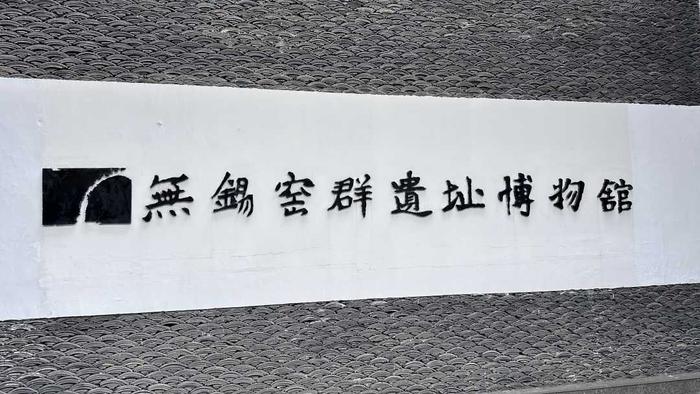 無錫窑群遺址博物館